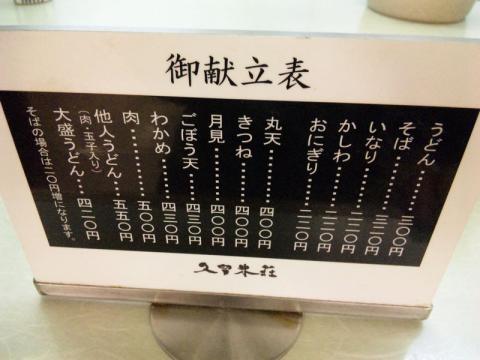 御献立表
うどん……三〇〇円
そば……三二〇円
いなり……二二〇円
かしわ……二二〇円
おにぎり……二〇〇円
丸天……四〇〇円
きつね……四〇〇円
月見……四〇〇円
ごぼう天……四三〇円
わかめ……四三〇円
肉……五〇〇円
他人うどん…五五〇円
(肉・玉子入り)
大盛うどん…四二〇円
そばの場合は二〇円増になります。
久留米荘